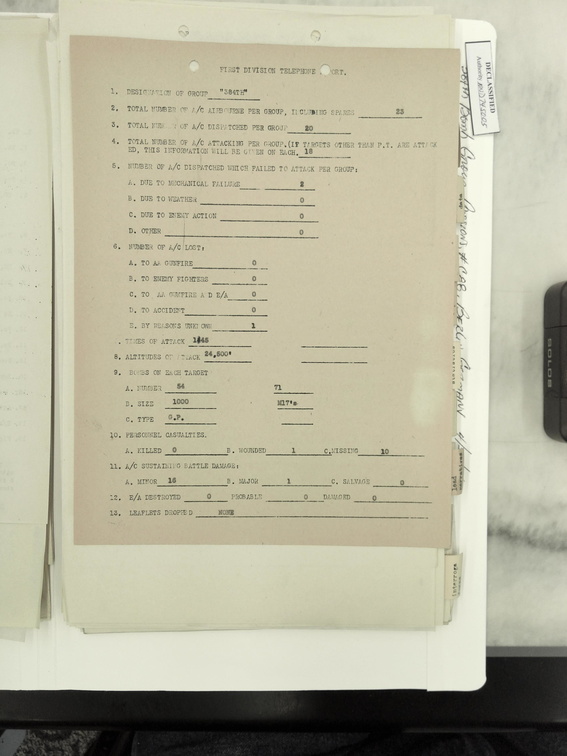 FIRST DIVISION TELEPHONE
1. DESIGNATION OF GROUP "384TH"
2. TOTAL NUMBER OF A/C AIRBORNE PER GROUP, INCLUDING SPARES 23
3. TOTAL NUMBER OF A/C DISPATCHED PER GROUP 20
4. TOTAL NUMBER OF A/C ATTACKING PER GROUP.(IF TARGETS OTHER THAN P.T. ARE ATTACK
ED, THIS INFORMATION WILL BE GIVEN ON EACH. 18
5. NUMBER OF A/C DISPATCHED WHICH FAILED TO ATTACK PER GROUP:
A. DUE TO MECHANICAL FAILURE 2
B. DUE TO WEATHER 0
C. DUE TO ENEMY ACTION 0
D. OTHER 0
6. NUMBER OF A/C LOST:
A. TO AA GUNFIRE 0
B. TO ENEMY FIGHTERS 0
C. TO AA GUNFIRE A D E/A 0
D. TO ACCIDENT 0
E. BY REASONS UNKNOWN 1
. TIMES OF ATTACK 1345
8. ALTITUDES OF ATTACK 24,500'
9. BOMBS ON EACH TARGET
A. NUMBER 54 71
B. SIZE 1000 M17's
C. TYPE G.P.
10. PERSONNEL CASUALTIES.
A. KILLED 0 B. WOUNDED 1 C.MISSING 10
11. A/C SUSTAINING BATTLE DAMAGE:
A. MINOR 16 B. MAJOR 1 C. SALVAGE 0
12. E/A DESTROYED 0 PROBABLE 0 DAMAGED 0
13. LEAFLETS DROPPED NONE
DECLASSIFIED
Authority
SOLOS